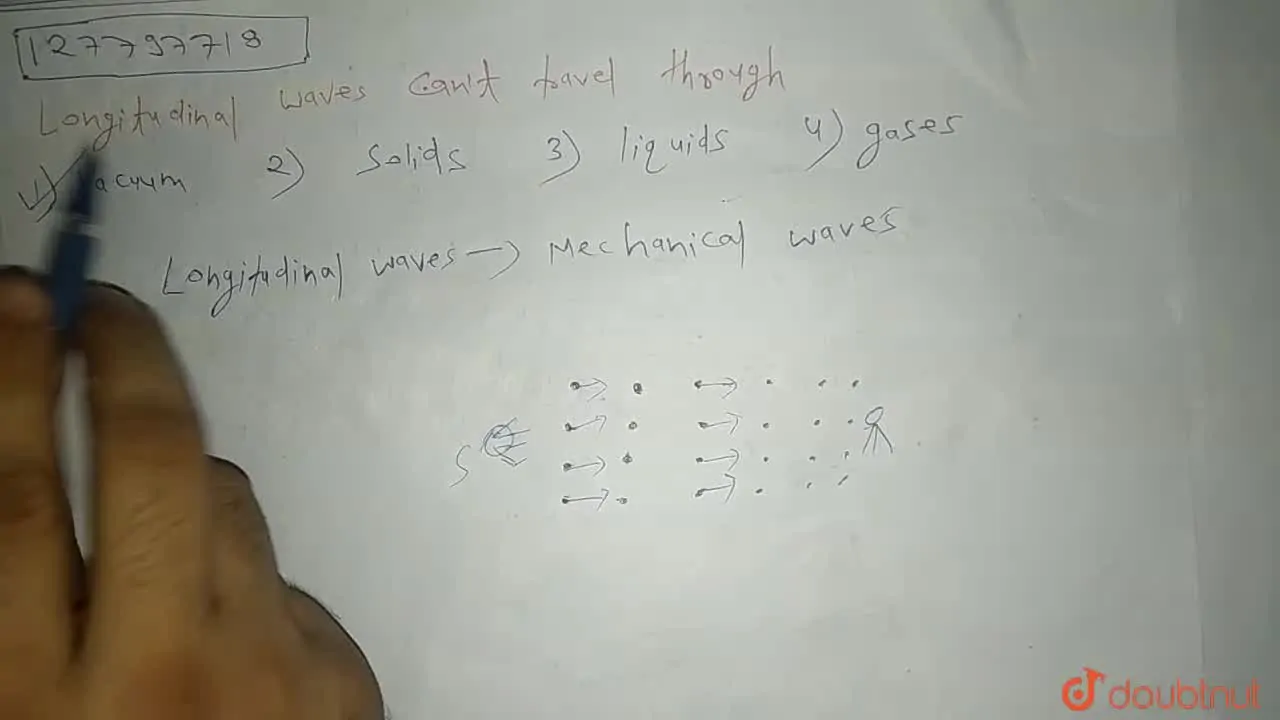 127797718
Longitudinal waves can't travel through
1) vacuum 2) Solids 3) liquids 4) gases
Longitudinal waves → Mechanical waves
S
doubtnut